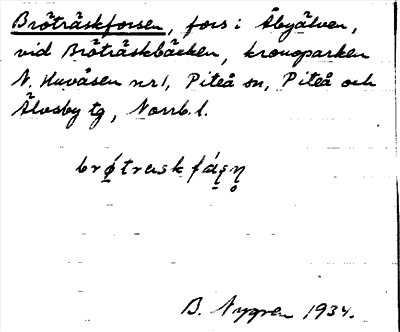 Bröträskforsen, fors i Åbyälven,
vid Bröträskbäcken, kronoparken
N. Huvåsen nr 1, Piteå sn, Piteå och
Älvsby tg, Norrb. l.
B. Nygren 1934.